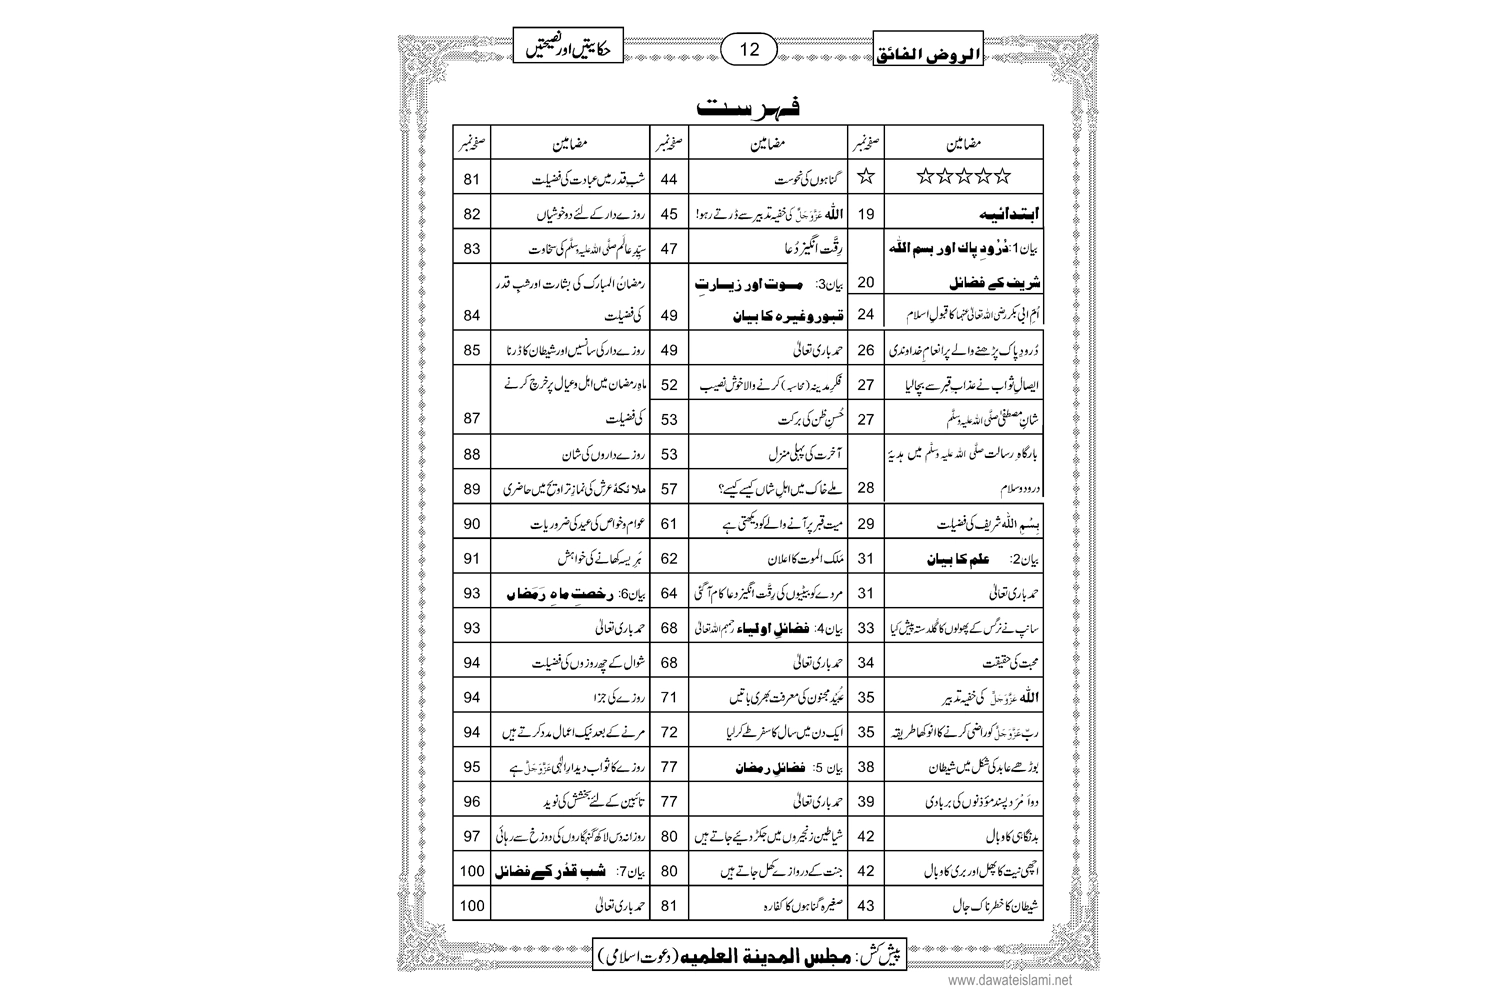 الروض الفائق
12
حکایتیں اور نصیحتیں
فہرست
مضامین صفحہ نمبر مضامین صفحہ نمبر مضامین صفحہ نمبر
☆☆☆☆☆ ☆ گناہوں کی نحوست 44 شبِ قدر میں عبادت کی فضیلت 81
ابتدائیہ 19 اللّٰہ عَزَّوَجَلَّ کی خفیہ تدبیر سے ڈرتے رہو! 45 روزے دار کے لئے دو خوشیاں 82
بیان1: دُرُودِ پاک اور بسم اللّٰہ شریف کے فضائل 20 رِقَّت انگیز دُعا 47 سیِّدِ عالَم صلَّی اللہ علیہ وسلَّم کی سخاوت 83
اُمِّ ابی بکر رضی اللہ تعالٰی عنہا کا قبولِ اسلام 24 بیان3: موت اور زیارتِ قبور وغیرہ کا بیان 49 رمضانُ المبارک کی بشارت اور شبِ قدر کی فضیلت 84
دُرودِ پاک پڑھنے والے پر انعامِ خداوندی 26 حمدِ باری تعالٰی 49 روزے دار کی سانسیں اور شیطان کا ڈرنا 85
ایصالِ ثواب نے عذابِ قبر سے بچالیا 27 فکرِ مدینہ (محاسبہ) کرنے والا خوش نصیب 52 ماہِ رمضان میں اہل وعیال پر خرچ کرنے کی فضیلت 87
شانِ مصطفیٰ صلَّی اللہ علیہ وسلَّم 27 حُسنِ ظن کی برکت 53
بارگاہِ رسالت صلَّی اللہ علیہ وسلَّم میں ہدیۂ درود وسلام 28 آخرت کی پہلی منزل 53 روزے داروں کی شان 88
ملے خاک میں اہلِ شاں کیسے کیسے؟ 57 ملائکۂ عرش کی نمازِ تراویح میں حاضری 89
بِسْمِ اللّٰہ شریف کی فضیلت 29 میت قبر پر آنے والے کو دیکھتی ہے 61 عوام وخواص کی عید کی ضروریات 90
بیان2: علم کا بیان 31 مَلَک الموت کا اعلان 62 ہَرِیسہ کھانے کی خواہش 91
حمدِ باری تعالٰی 31 مردے کو بیٹیوں کی رِقَّت انگیز دعا کام آگئی 64 بیان6: رخصتِ ماہِ رَمَضاں 93
سانپ نے نرگس کے پھولوں کا گلدستہ پیش کیا 33 بیان4: فضائلِ اولیاء رحمہم اللہ تعالٰی 68 حمدِ باری تعالٰی 93
محبت کی حقیقت 34 حمدِ باری تعالٰی 68 شوال کے چھ روزوں کی فضیلت 94
اللّٰہ عَزَّوَجَلَّ کی خفیہ تدبیر 35 عُبَیْد مجنون کی معرفت بھری باتیں 71 روزے کی جزا 94
ربّ عَزَّوَجَلَّ کو راضی کرنے کا انوکھا طریقہ 35 ایک دن میں سال کا سفر طے کرلیا 72 مرنے کے بعد نیک اعمال مدد کرتے ہیں 94
بوڑھے عابد کی شکل میں شیطان 38 بیان 5: فضائلِ رمضان 77 روزے کا ثواب دیدارِ الٰہی عَزَّوَجَلَّ ہے 95
دو اَمْرَد پسند مؤذنوں کی بربادی 39 حمدِ باری تعالٰی 77 تائبین کے لئے بخشش کی نوید 96
بدنگاہی کا وبال 42 شیاطین زنجیروں میں جکڑ دئیے جاتے ہیں 80 روزانہ دس لاکھ گنہگاروں کی دوزخ سے رہائی 97
اچھی نیت کا پھل اور بری کا وبال 42 جنت کے دروازے کھل جاتے ہیں 80 بیان7: شبِ قَدْر کے فضائل 100
شیطان کا خطرناک جال 43 صغیرہ گناہوں کا کفارہ 81 حمدِ باری تعالٰی 100
پیش کش: مجلس المدینۃ العلمیہ (دعوت اسلامی)
www.dawateislami.net